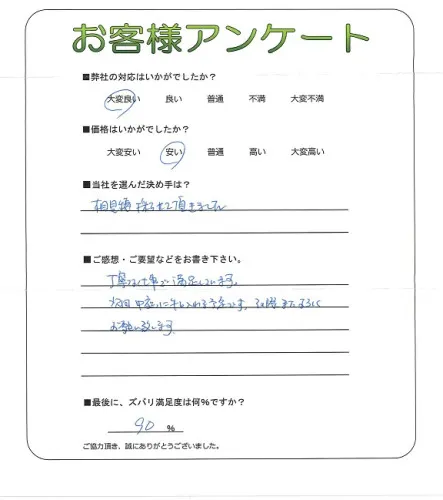 お客様アンケート
■弊社の対応はいかがでしたか？
大変良い 良い 普通 不満 大変不満
■価格はいかがでしたか？
大変安い 安い 普通 高い 大変高い
■当社を選んだ決め手は？
相見積 採らせて頂きました
■ご感想・ご要望などをお書き下さい。
丁寧な仕事で満足しています。
次回 に 入れる予定です。その際 またよろしく
お願い致します
■最後に、ズバリ満足度は何％ですか？
90 ％
ご協力頂き、誠にありがとうございました。